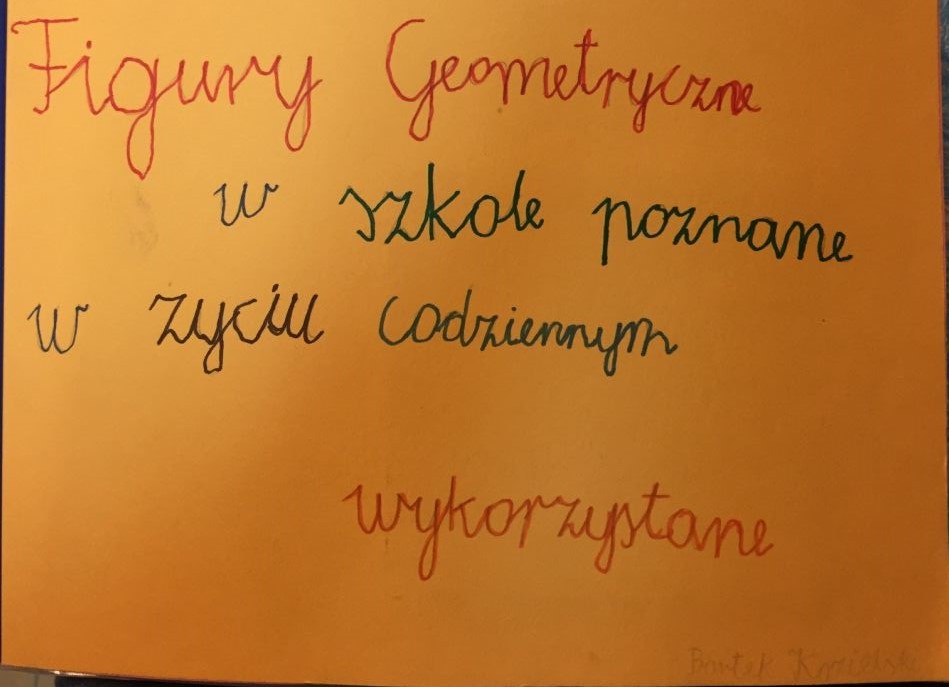 Figury Geometryczne
w szkole poznane
w życiu codziennym
wykorzystane
Bartek Kozielski